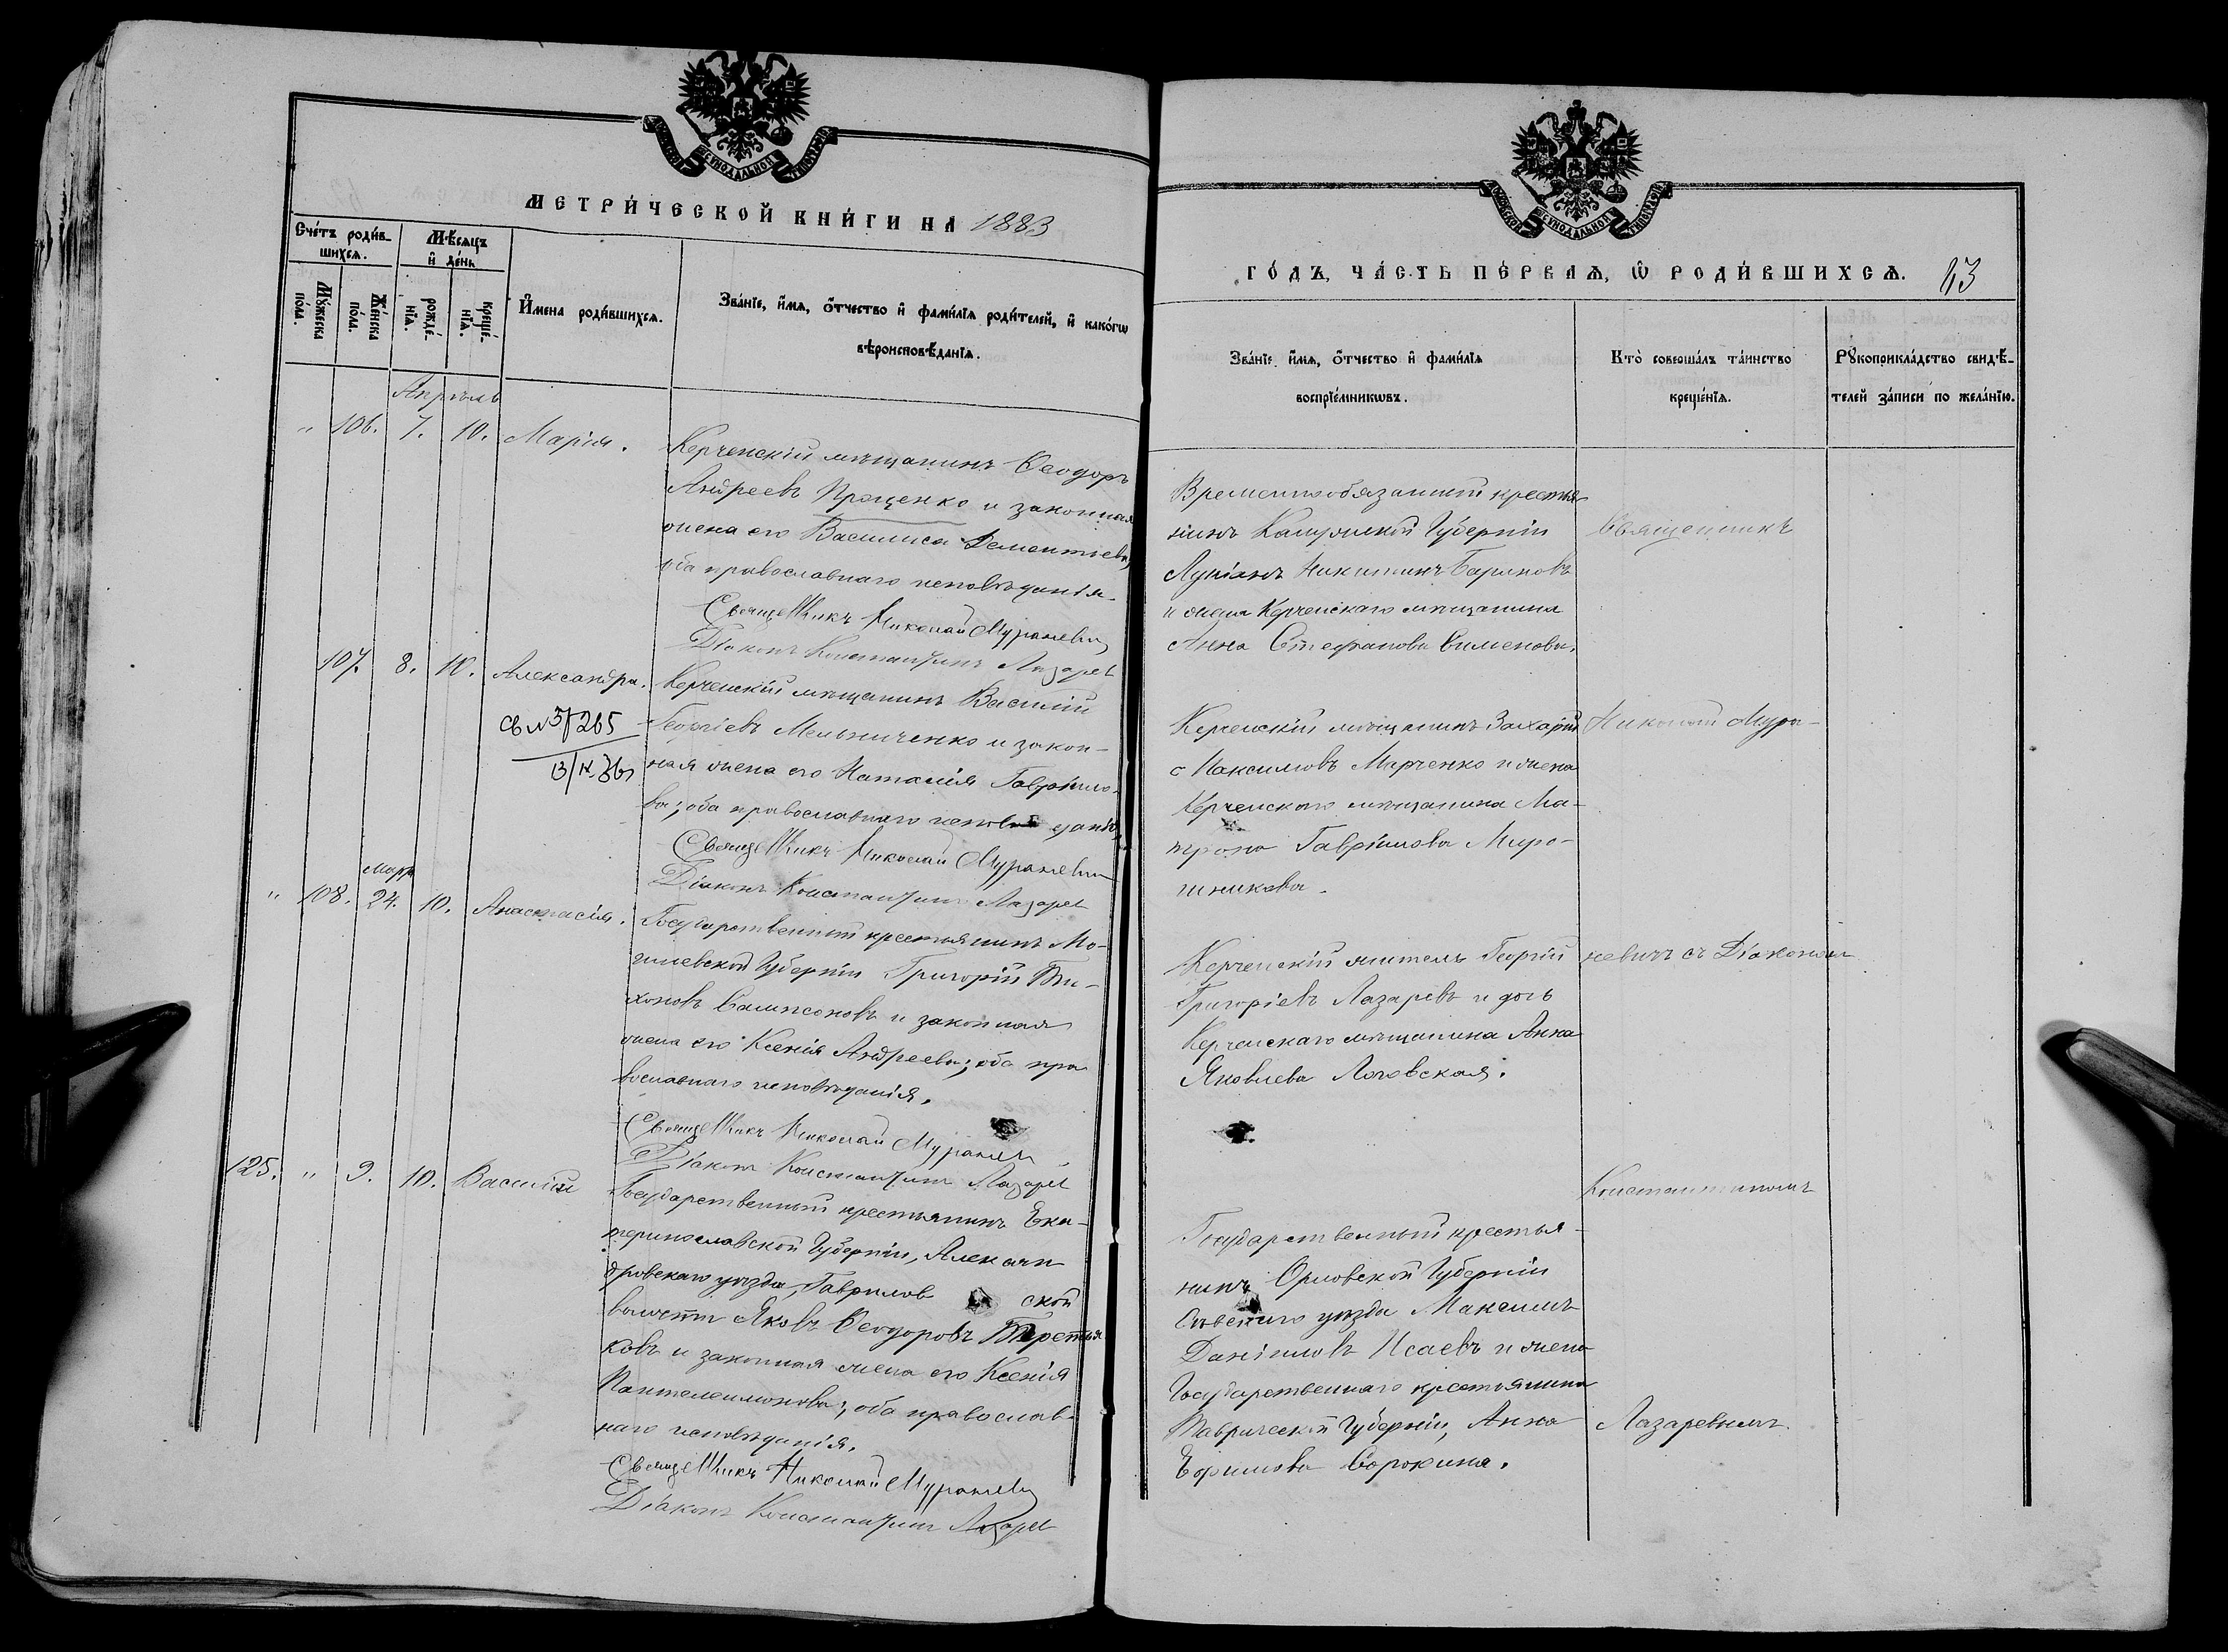 МЕТРИ́ЧЕСКОЙ КНИ́ГИ НА 1883
Сче́тъ роди́в-
шихсѧ.
Мѣ́сѧцъ
и҆ де́нь
Мꙋ́жеска
по́ла.
Же́нска
по́ла.
рожде́-
нїѧ.
креще́-
нїѧ.
И҆мена роди́вшихсѧ.
Зва́нїе, и҆́мѧ, ѻ҆́тчество и҆ фами́лїѧ роди́телей, и҆ како́гѡ
вѣроисповѣ́данїѧ.
Апрѣль
" 106. 7. 10. Марія.
Керченскій мѣщанинъ Ѳеодоръ
Андреевъ Проценко и законная
жена его Василиса Дементьева,
оба православнаго исповѣданія.
Священникъ Николай Мураневичъ
Діаконъ Константинъ Лазаревъ
107. 8. 10. Александра.
Керченскій мѣщанинъ Василій
Георгіевъ Мельниченко и закон-
ная жена его Наталія Гавріило-
ва; оба православнаго исповѣданія
Священникъ Николай Мураневичъ
Діаконъ Константинъ Лазаревъ
мартъ
" 108. 24. 10. Анастасія.
Государственный крестьянинъ Мо-
гилевской Губерніи Григорій Ти-
хоновъ Сампсоновъ и законная
жена его Ксенія Андреева; оба пра
вославнаго исповѣданія.
Священникъ Николай Мураневичъ
Діаконъ Константинъ Лазаревъ
125. " 9. 10. Василій
Государственный крестьянинъ Ека-
теринославской Губерніи, Алексан
дровскаго уѣзда, Гаврилов ской
волости Яковъ Ѳеодоровъ Третья
ковъ и законная жена его Ксенія
Пантелеимонова; оба православ-
наго исповѣданія.
Священникъ Николай Мураневичъ
Діаконъ Константинъ Лазаревъ
ГО́ДЪ, ЧА́СТЬ ПЕ́РВАѦ, Ѽ РОДИ́ВШИХСѦ. 43
Зва́нїе, и҆́мѧ, ѻ҆́тчество и҆ фами́лїѧ
воспрїе́мникѡвъ.
Кто̀ соверша́лъ та́инство
креще́нїѧ.
Рꙋкоприкла́дство свидѣ́-
телей за́писи по жела́нїю.
Временнообязанный крестья
нинъ Калужской Губерніи
Лукіанъ Никитинъ Бариновъ
и жена Керченскаго мѣщанина
Анна Стефанова Сименова.
Священникъ
Керченскій мѣщанинъ Захарій
Максимовъ Марченко и жена
Керченскаго мѣщанина Ма-
трона Гавріилова Миро-
шникова.
Николай Мура-
Керченскій житель Георгій
Григоріевъ Лазаревъ и дочь
Керченскаго мѣщанина Анна
Яковлева Логовская.
невичъ съ Діакономъ
Константиномъ
Государственный крестья-
нинъ Орловской Губерніи
Сѣвскаго уѣзда Максимъ
Даніиловъ Исаевъ и жена
Государственнаго крестьянина
Таврической Губерніи, Анна
Ефимова Сорокина.
Лазаревымъ.